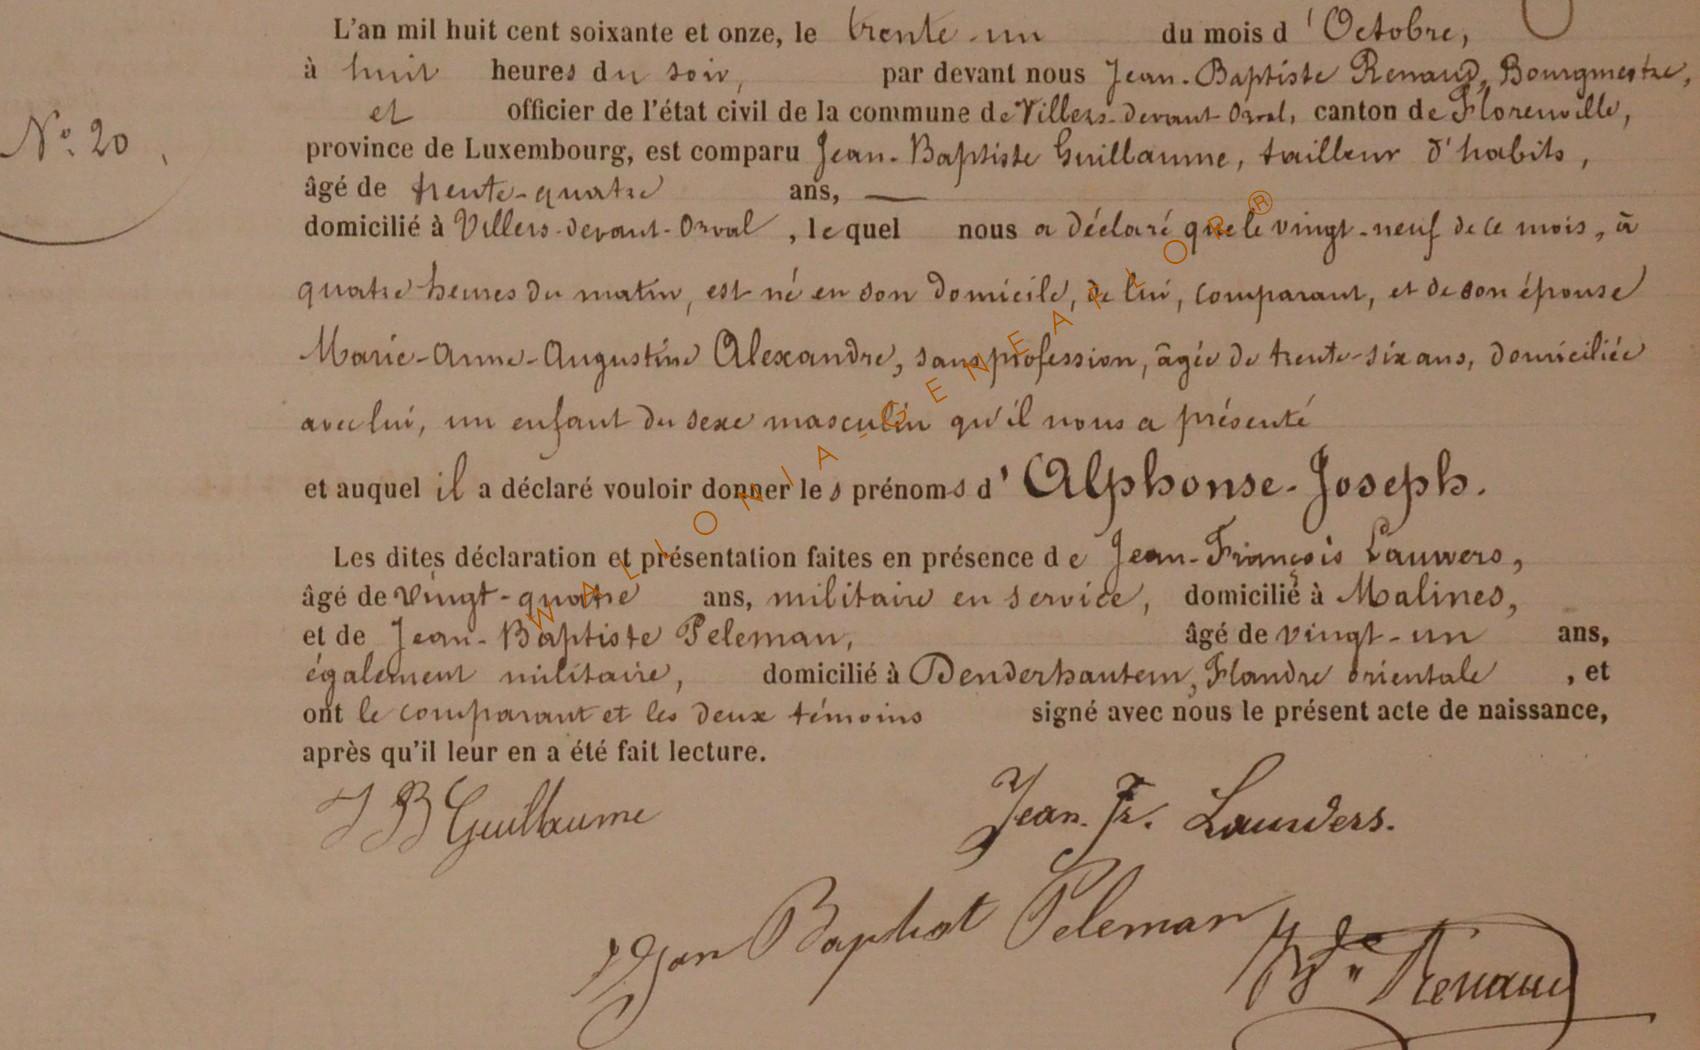 L'an mil huit cent soixante et onze, le trente-un du mois d'Octobre,
à huit heures du soir, par devant nous Jean-Baptiste Renaud, Bourgmestre,
et officier de l'état civil de la commune de Villers-devant-Orval, canton de Florenville,
N° 20
province de Luxembourg, est comparu Jean-Baptiste Guillaume, tailleur d'habits,
âgé de trente-quatre ans, —
domicilié à Villers-devant-Orval, lequel nous a déclaré que le vingt-neuf de ce mois, à
quatre heures du matin, est né en son domicile, de lui, comparant, et de son épouse
Marie-Anne-Augustine Alexandre, sans profession, âgée de trente-six ans, domiciliée
avec lui, un enfant du sexe masculin qu'il nous a présenté
et auquel il a déclaré vouloir donner les prénoms d'Alphonse-Joseph.
Les dites déclaration et présentation faites en présence de Jean-François Lauwers,
âgé de vingt-quatre ans, militaire en service, domicilié à Malines,
et de Jean-Baptiste Peleman, âgé de vingt-un ans,
également militaire, domicilié à Denderhautem, Flandre orientale, et
ont le comparant et les deux témoins signé avec nous le présent acte de naissance,
après qu'il leur en a été fait lecture.
J B Guillaume
Jean. Fr. Lauwers.
Jan Baptist Peleman
Renaud
WALLONIA-GENEAFLOR®